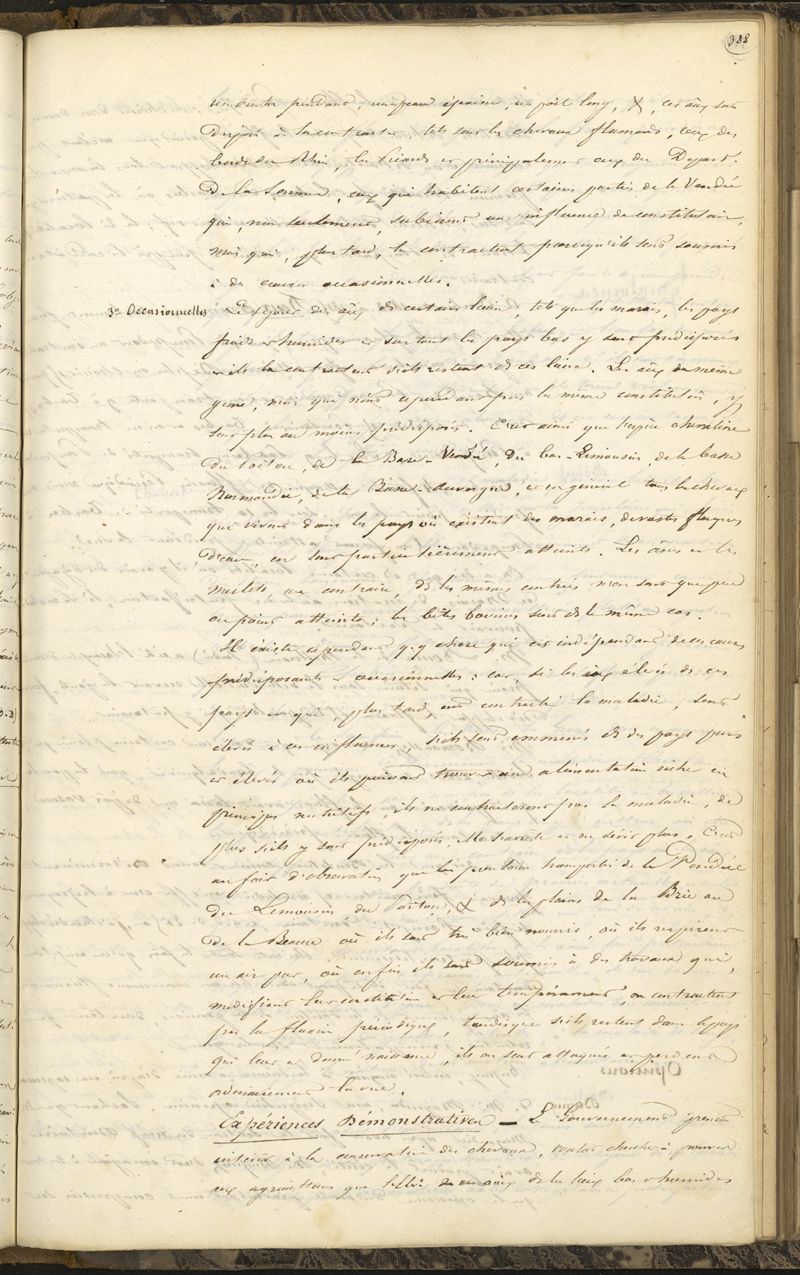 388
ventre pendant, une peau épaisse, un poil long, &, ces aūx sont
disposés à la contracter, tels sont les chevaux flamands, ceux des
bords du Rhin, les Picards et principalement ceux du Départ.
De la Somme, ceux qui habitent certaines parties de la Vendée
qui, non seulement, subissent une influence de constitution,
mais qui, plus tard, la contractent parcequ'ils sont soumis
à des causes occasionnelles.
3° Occasionnelles
Le séjour des aūx ds certains lieux, tels que les marais, les pays
froids et humides et surtout les pays bas y sont prédisposés
et ils la contractent s'ils restent ds ces lieux. Les aūx du même
genre, mais qui n'ont cependant pas la même constitution, y
sont plus ou moins prédisposés. C'est ainsi que l'espèce chevaline
du Poitou, de la Basse-Vendée, du bas-Limousin, de la basse
Normandie, de la Basse-Auvergne, et en général tous les chevaux
qui vivent dans les pays où existent des marais, de vastes flaques
d'eau, en sont particulièrement atteints. Les ânes et les
mulets, au contraire, ds les mêmes contrées n'en sont que peu
ou point atteints; les bêtes bovines sont ds le même cas.
Il existe cependant qq chose qui est indépendant de ces causes
prédisposantes et occasionnelles: car, si les aūx élevés ds ces
pays et qui, plus tard, ont contracté la maladie, sont
élevés à ces influences, s'ils sont emmenés ds des pays purs
et élevés où ils puissent trouver une alimentation riche en
principes nutritifs, ils ne contracteront pas la maladie, de
plus s'ils y sont prédisposés, elle s'arrête et ne sévit plus. C'est
un fait d'observation que les poulains transportés de la Vendée
du Limousin, du Poitou, & ds les plaines de la Brie ou
de la Beauce où ils sont très bien nourris, où ils respirent
un air pur, où enfin ils sont soumis à des travaux qui,
modifient leur constitution et leur tempérament, ne contractent
pas la fluxion périodique, tandis que s'ils restent dans le pays
qui leur a donné naissance, ils en sont attaqués et perdent
ordinairement la vue.
Expériences Démonstratives – Le Gouvernement prenant
intérêt à la conservation des chevaux, voulut chercher à prouver
aux agriculteurs que l'élève de ces aūx ds les lieux bas et humides